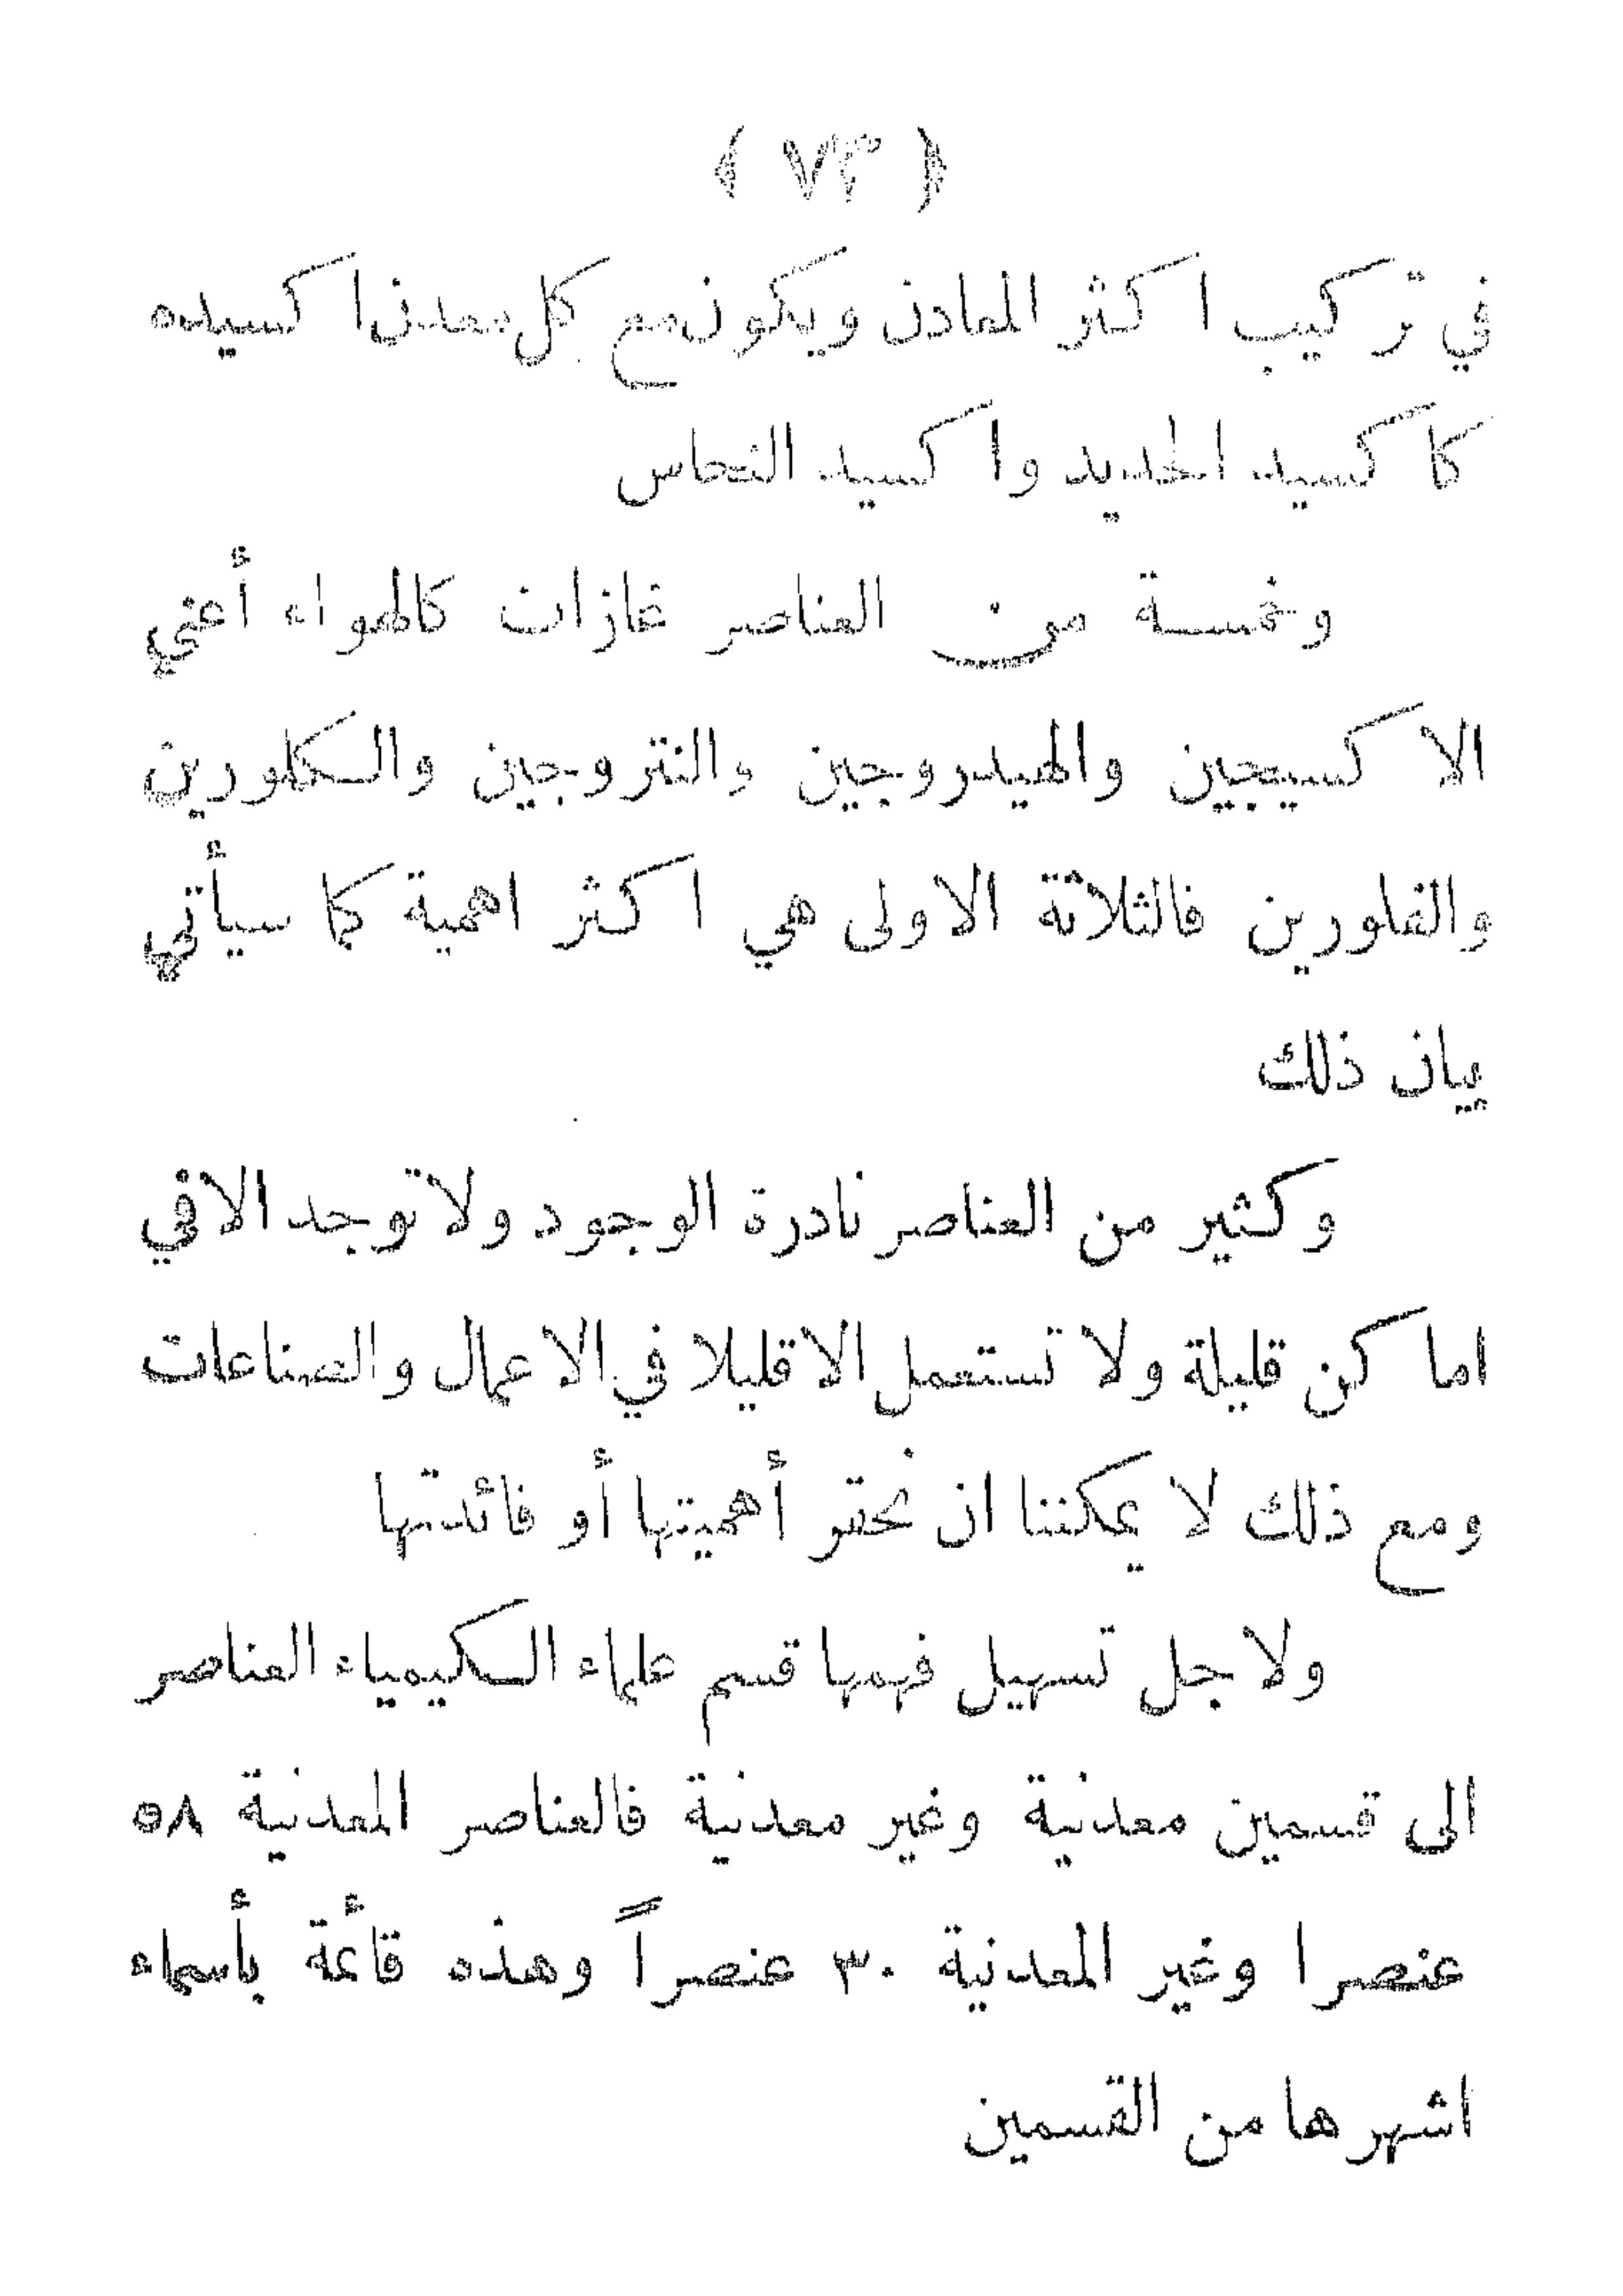 ﴿ ٧٣ ﴾
في تركيب اكثر المعادن ويكون مع كل معدن اكسيده
كاكسيد الحديد واكسيد النحاس
وخمسة من العناصر غازات كالهواء أعني
الاكسيجين والهيدروجين والنتروجين والكلورين
والفلورين فالثلاثة الاولى هي اكثر اهمية كما سيأتي
بيان ذلك
وكثير من العناصر نادرة الوجود ولا توجد الا في
اماكن قليلة ولا تستعمل الا قليلا في الاعمال والصناعات
ومع ذلك لا يمكننا ان نحتقر أهميتها أو فائدتها
ولاجل تسهيل فهمها قسم علماء الكيمياء العناصر
الى قسمين معدنية وغير معدنية فالعناصر المعدنية ٥٨
عنصرا وغير المعدنية ٣٠ عنصراً وهذه قأئمة بأسماء
اشهرها من القسمين